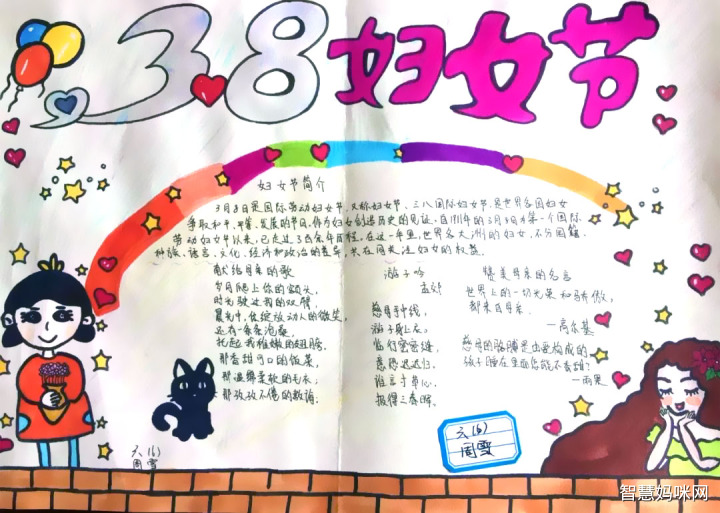 3.8妇女节
妇女节简介
3月8日是国际劳动妇女节,又称妇女节、三八国际妇女节.是世界各国妇女
争取和平、平等、发展的节日,作为妇女创造历史的见证,自1911年的3月8日第一个国际
劳动妇女节以来,已走过百余年历程,在这一年里,世界各大洲的妇女,不分国籍、
种族、语言、文化、经济和政治的差异,共在同关注妇女的权益.
献给母亲的歌
岁月爬上你的额头,
时光驶过我的双臂,
晨光中,你绽放动人的微笑,
还有一条条泡桑,
托起我稚嫩的翅膀.
那香甜可口的饭菜,
那温绵柔软的毛衣,
那孜孜不倦的教诲,
游子吟
孟郊
慈母手中线,
游子身上衣.
临行密密缝,
意恐迟迟归.
谁言寸草心,
报得三春晖.
赞美母亲的名言
世界上的一切光荣和骄傲,
都来自母亲.
—高尔基
慈母的胳膊是由爱构成的,
孩子睡在里面怎能不香甜?
—雨果
六(6)
周雪
六(6)
周雪
智慧妈咪网